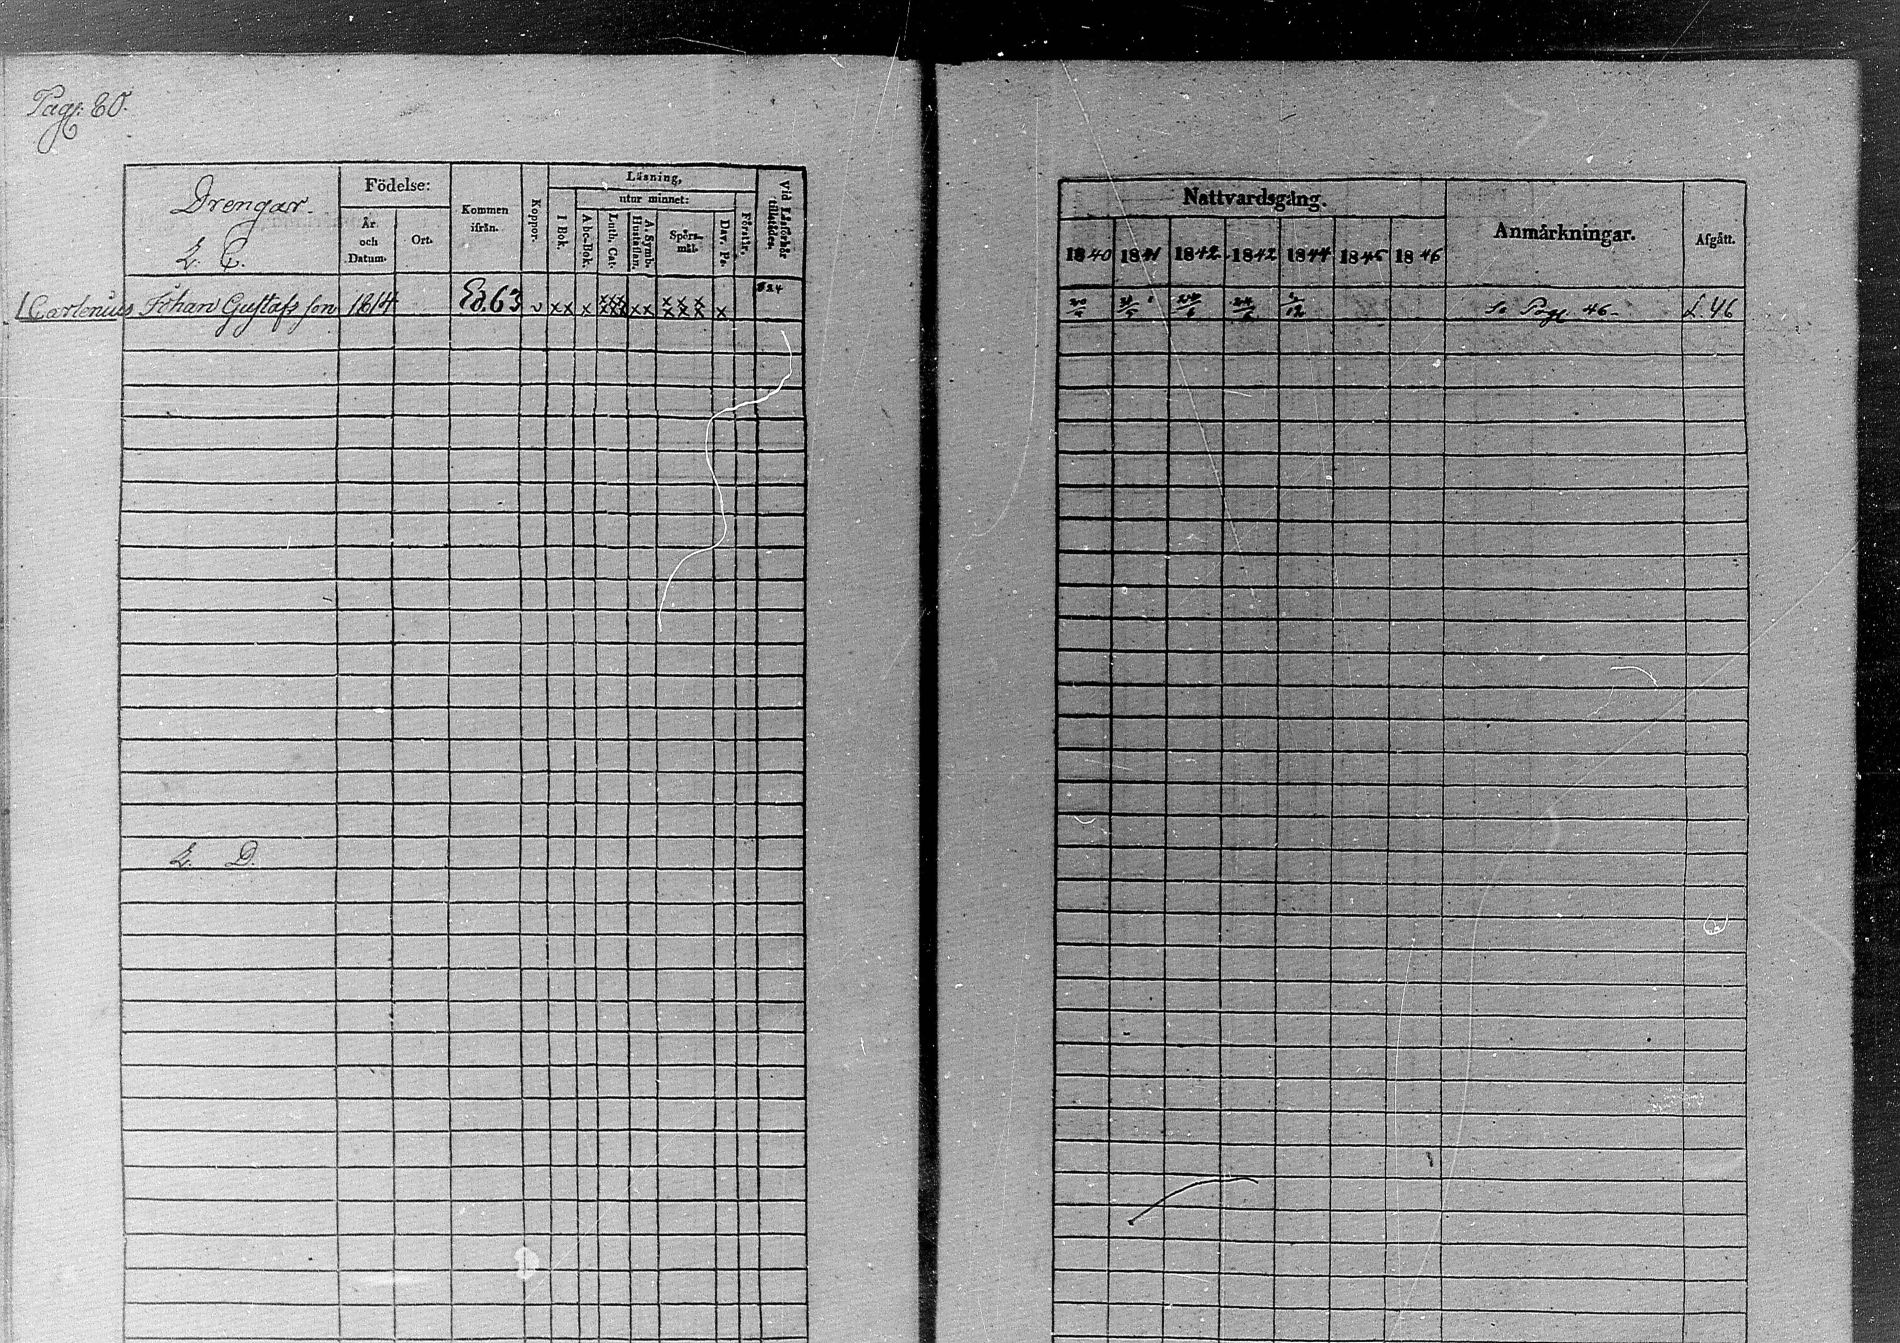 Pag: 80.
Drengar.
L. C.
Födelse:
År
och
Datum.
Ort.
Kommen
ifrån.
Koppor.
Läsning,
utur minnet:
I Bok.
Abc-Bok.
Luth. Cat.
A. Symb.
Hustaflan.
Spörs-
mål.
Dav. Ps.
Förstår.
Vid Läsförhör
tillstädes.
Carlenius Johan Gustafs son 1814 63 v x x x xxx xxx x x x x x x x x x
L. D.
Nattvardsgång.
1840 1841 1842 1842 1844 1845 1846
Anmärkningar.
Afgått.
Se Pag: 46. L. 46